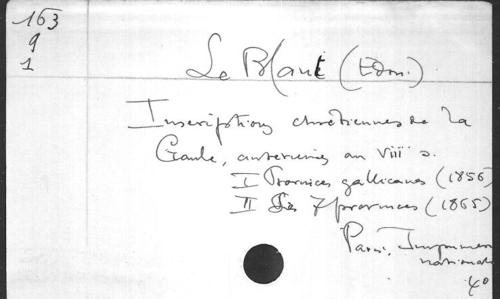 163
9
1
Le Blant (Edm.)
Inscriptions chrétiennes de la
Gaule, antérieures au VIIIe s.
I Provinces gallicanes (1856)
II Les 7 provinces (1865)
Paris, Imprimerie
nationale
4o